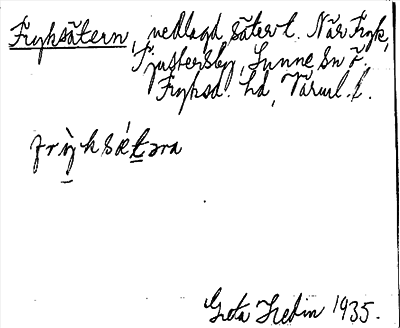 Fryksätern, nedlagd sätert. När Fryk,
Ljustersby, Sunne sn ö.
Fryksd. hd, Värml. l.
frỳksǽtəra
Greta Hedin 1935.